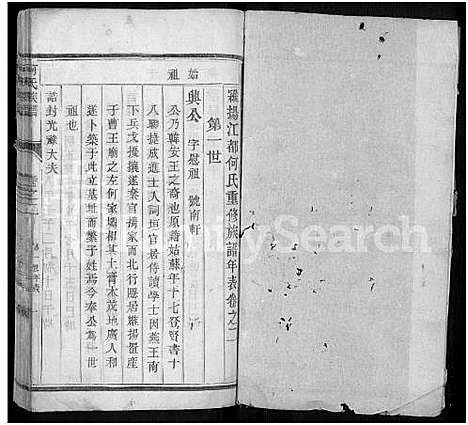 維揚江都何氏重修族譜年表卷之二
第一世
始祖
興公 字慰祖 號南軒
公乃韓安王之裔也原籍姑蘇年十七登賢書十
八聯捷成進士入詞垣官居侍讀學士因燕王南
下兵戈擾攘遂棄官攜家而北行隱居維揚蜑產
于曹王廟之左何家壩相其土膏木茂地廣人和
遂卜築于此立基址而繁子姓焉今奉公為一世
祖也
誥封光祿大夫
何氏族譜